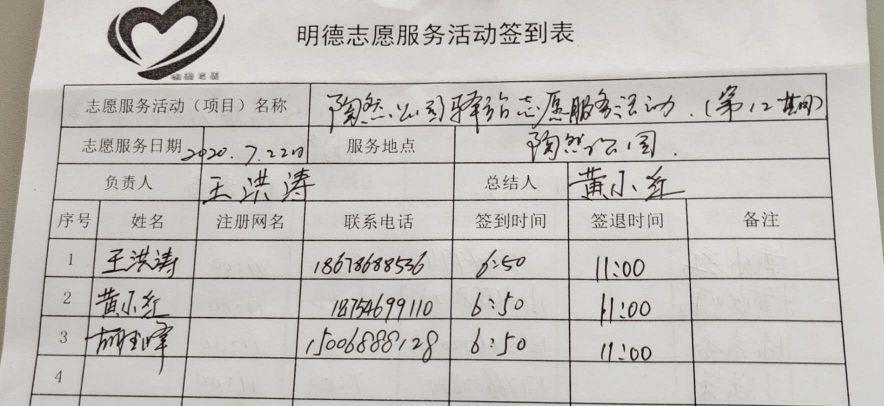 明德志愿服务活动签到表
志愿服务活动（项目）名称 陶然公园驿站志愿服务活动.（第12期）
志愿服务日期 2020.7.22日 服务地点 陶然公园.
负责人 王洪涛 总结人 黄小红
序号 姓名 注册网名 联系电话 签到时间 签退时间 备注
1 王洪涛 18678688536 6:50 11:00
2 黄小红 18754699110 6:50 11:00
3 胡玉峰 15006888128 6:50 11:00
4